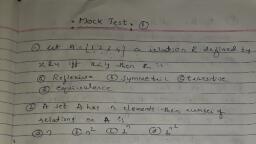 : Mock Test : ①
① Let A = {1,2,3,4} a relation R defined by
then R is
ⓐ Reflexive ⓑ Symmetric ⓒ
ⓓ equivalence
② A set A has n elements then number of
relations on A is
ⓑ n² ⓒ 2ⁿ ⓓ